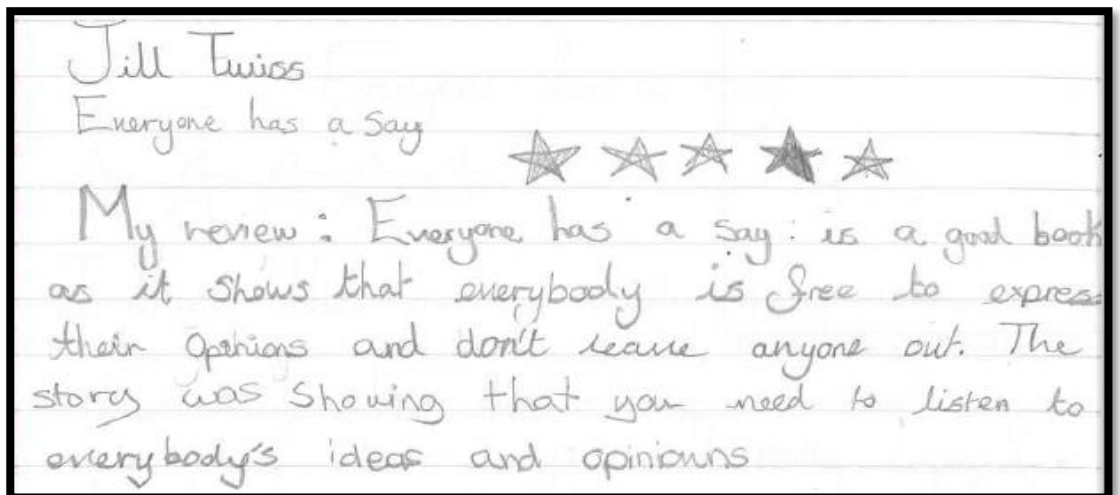 Jill Twiss
Everyone has a Say
My review: Everyone has a say: is a good book
as it shows that everybody is free to express
their Opinions and don't leave anyone out. The
story was Showing that you need to listen to
everybody's ideas and opiniouns